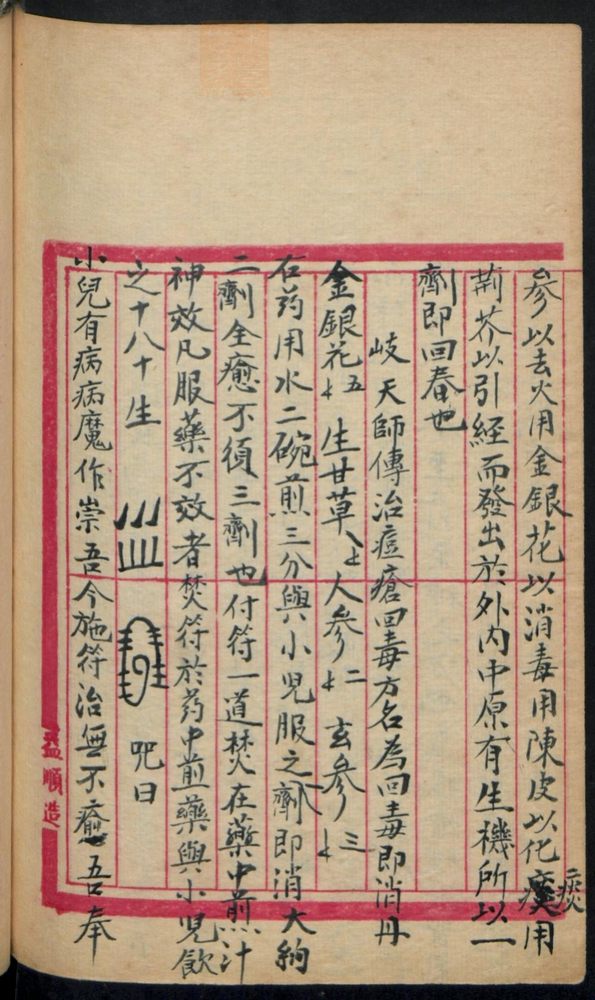 參以去火用金銀花以消毒用陳皮以化痰用
荊芥以引經而發出於外內中原有生機所以一
劑即回春也
岐天師傳治痘瘡回毒方名為回毒即消丹
金銀花五 生甘草一 人參二 玄參三
右药用水二碗煎三分與小兒服之一劑即消大約
二劑全癒不須三劑也付符一道焚在藥中煎汁
神效凡服藥不效者焚符於药中煎藥與小兒飲
之十八十生 咒曰
小兒有病病魔作祟吾今施符治無不癒吾奉
孟順造